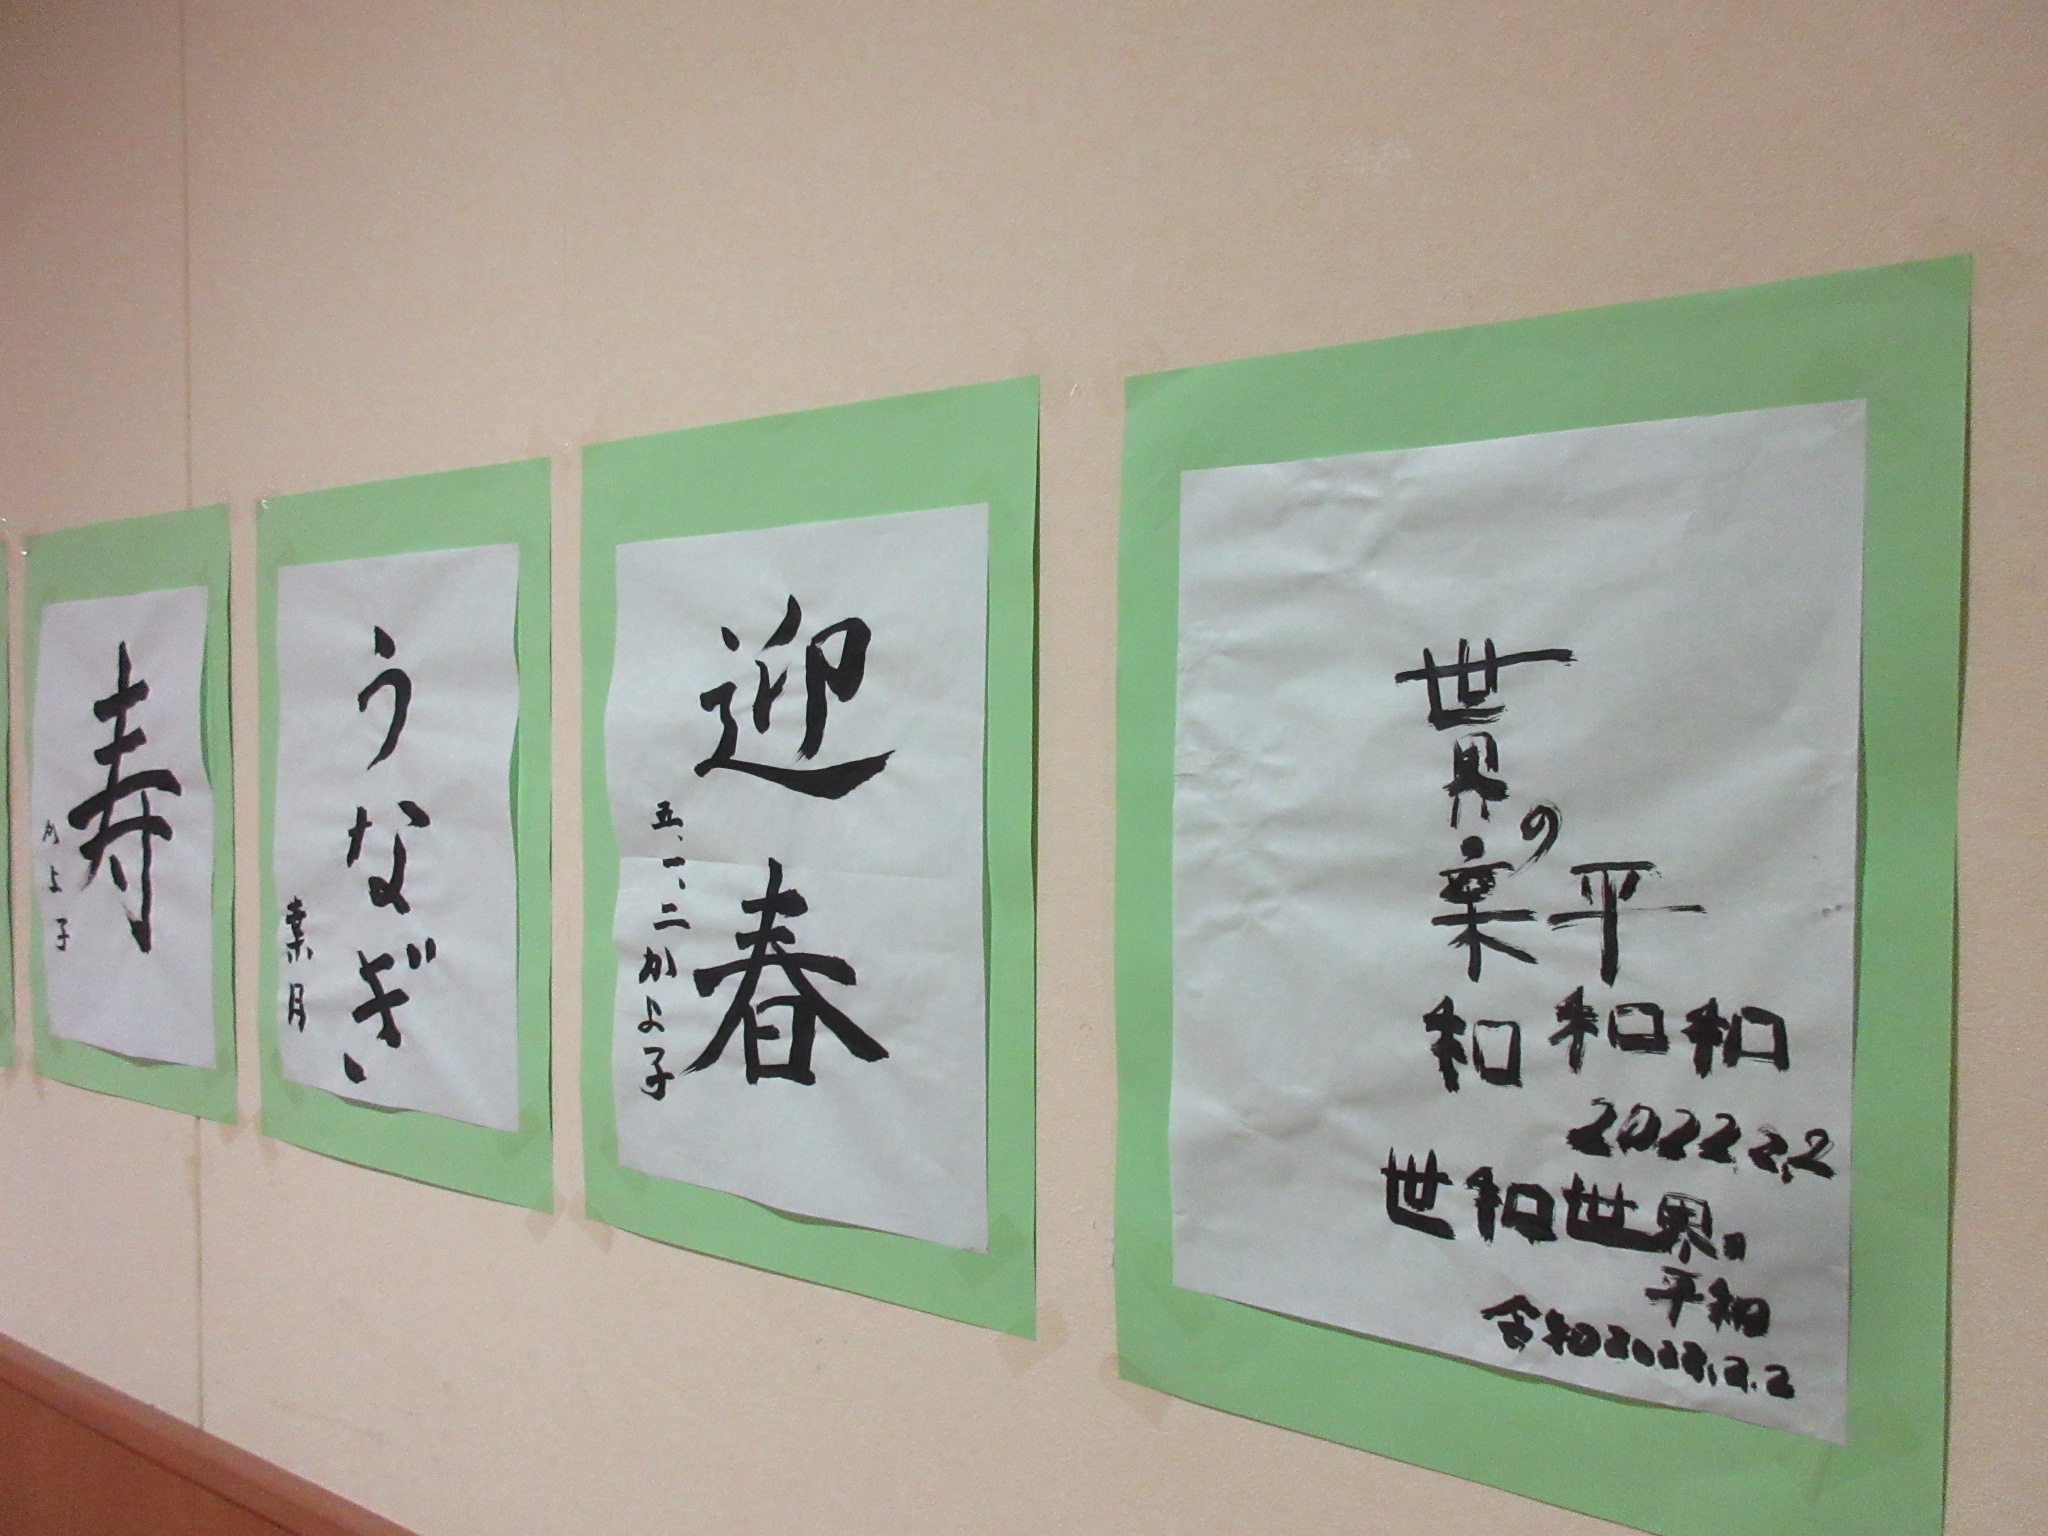 寿
かよ子
うなぎ
葉月
迎春
五、一、二かよ子
世界の
平
和和和
2022.2.2
世和世界。
平和
令和2022.2.2